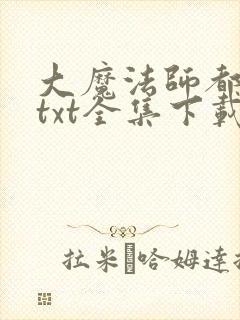 大魔法師都
txt全集下載
拉米 哈姆達